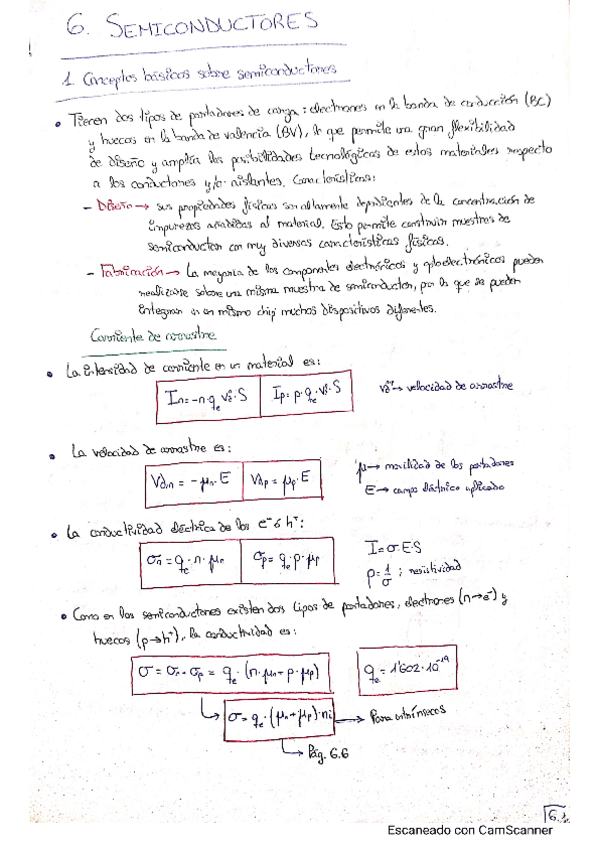 6. SEMICONDUCTORES
1. Conceptos básicos sobre semiconductores
• Tienen dos tipos de portadores de carga: electrones en la banda de conducción (BC)
y huecos en la banda de valencia (BV), lo que permite una gran flexibilidad
de diseño y amplía las posibilidades tecnológicas de estos materiales respecto
a los conductores y/o aislantes. Características:
- Diseño → sus propiedades físicas son altamente dependientes de la concentración de
impurezas añadidas al material. Esto permite construir muestras de
semiconductor con muy diversas características físicas.
- Fabricación → La mayoría de los componentes electrónicos y optoelectrónicos pueden
realizarse sobre una misma muestra de semiconductor, por lo que se pueden
integrar en un mismo chip muchos dispositivos diferentes.
Corriente de arrastre
• La intensidad de corriente en un material es:
In = -n·qe·vd·S Ip = p·qe·vd·S vd → velocidad de arrastre
• La velocidad de arrastre es:
Vdn = -μn·E Vdp = μp·E μ → movilidad de los portadores
E → campo eléctrico aplicado
• La conductividad eléctrica de los e⁻ ó h⁺:
σn = qe·n·μn σp = qe·p·μp I = σ·E·S
ρ = 1/σ ; resistividad
• Como en los semiconductores existen dos tipos de portadores, electrones (n→e⁻) y
huecos (p→h⁺), la conductividad es:
σ = σn·σp = qe·(n·μn + p·μp) qe = 1'602·10⁻¹⁹
σ = qe·(μn + μp)·ni → Para intrínsecos
Pág. 6.6
6.1
Escaneado con CamScanner